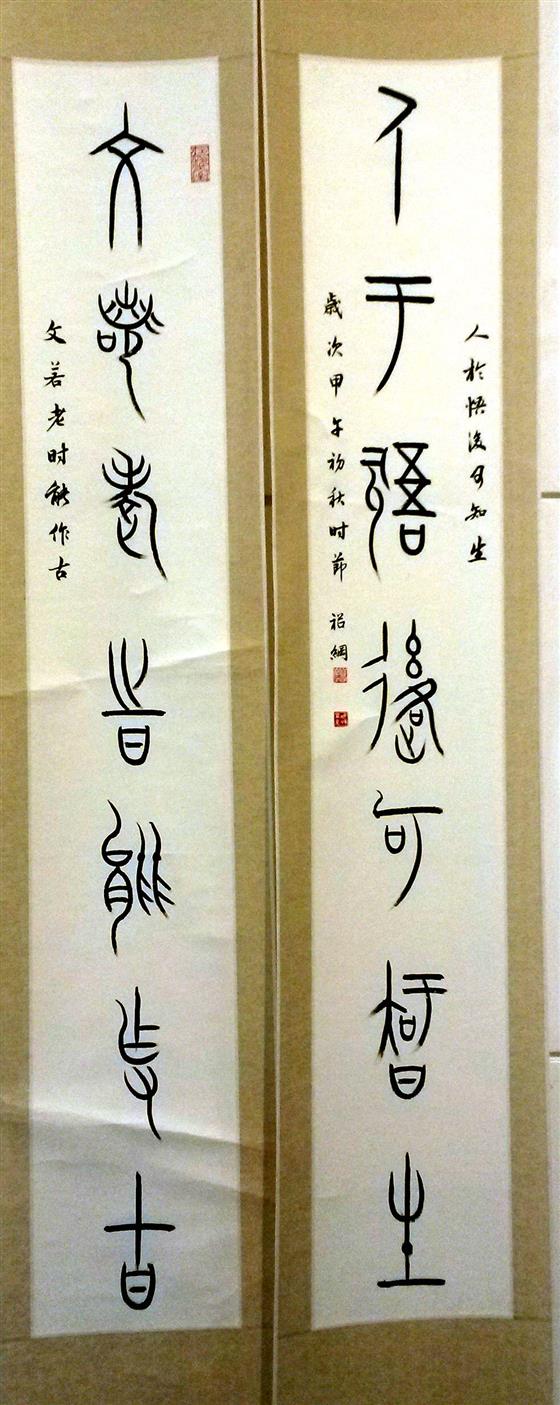 人於悟後可知生
人于悟後可智生
歲次甲午初秋时節 綱
文若老時能作古
文若老时能作古